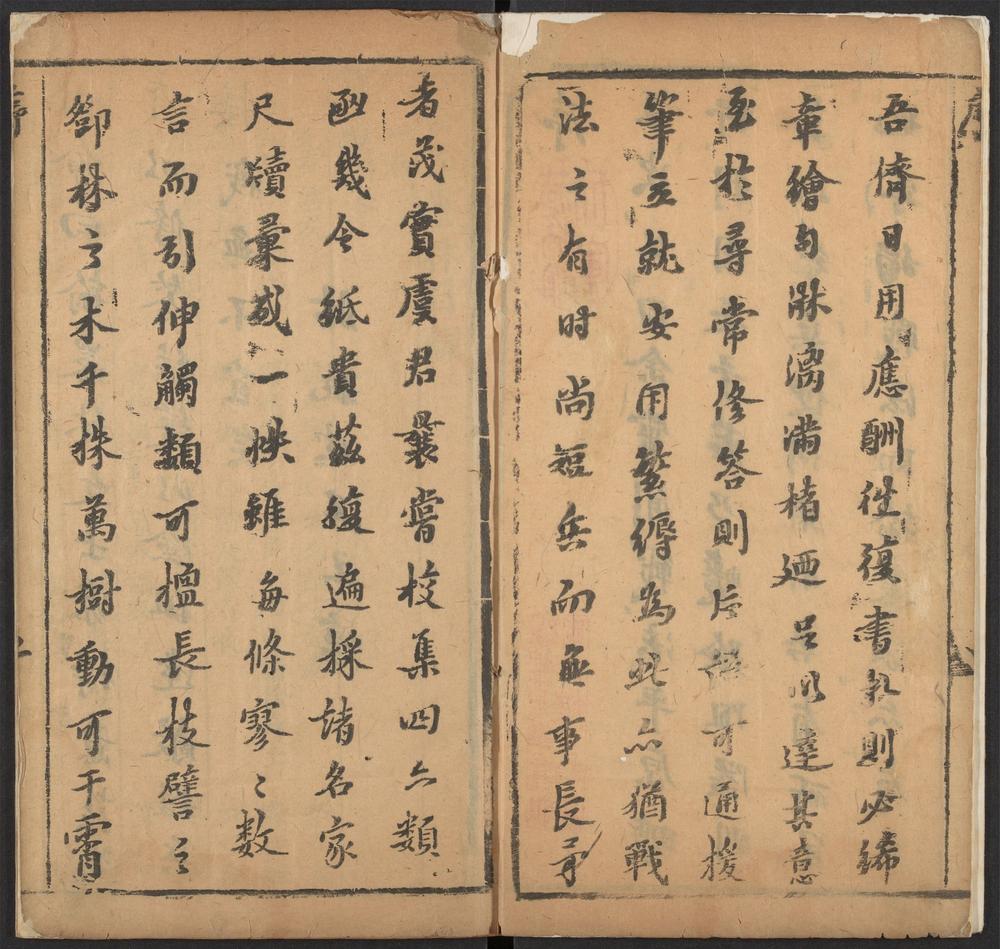 序
吾儕日用應酬徃復書札則必絺
章繪句淋漓滿楮廼足以達其意
至於尋常修答則片語可通援
筆立就安用繁縟為此亦猶戰
法之有时尚短兵而無事長矛
者茂實虞君曩嘗校集四六類
函幾令紙貴茲復遍採諸名家
尺牘彙成一帙雖每條寥〻数
言而引伸觸類可長枝譬之
鄧林之木千株萬樹動可干霄